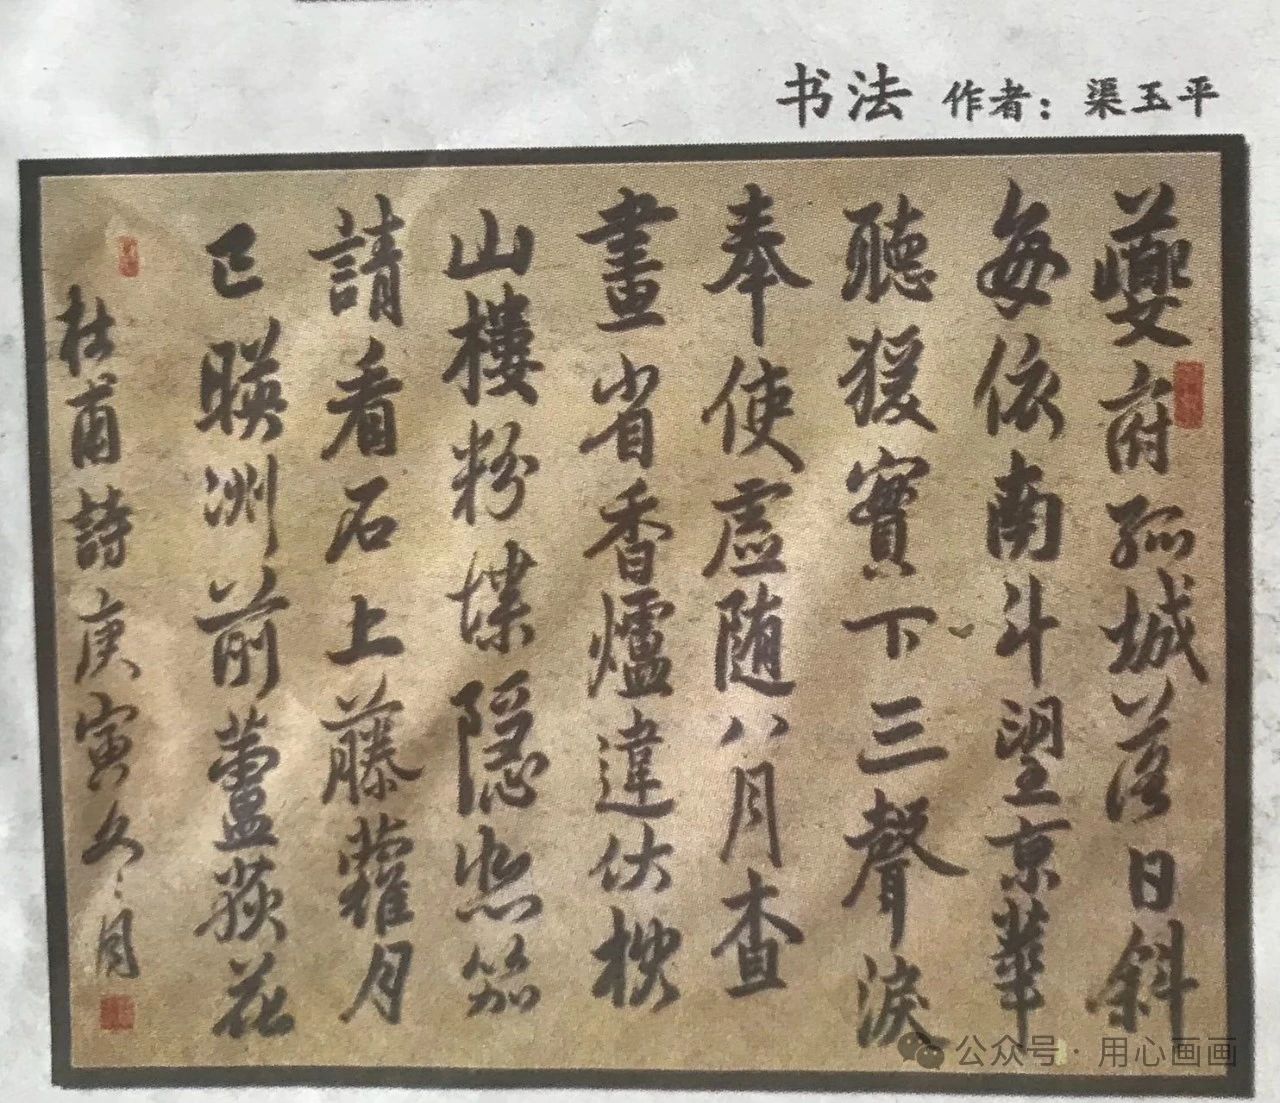 书法 作者：渠玉平
夔府孤城落日斜
每依南斗望京華
聽猨實下三聲淚
奉使虛随八月查
畫省香爐違伏枕
山樓粉堞隱悲笳
請看石上藤蘿月
已暎洲前蘆荻花
杜甫詩庚寅冬月
公众号·用心画画